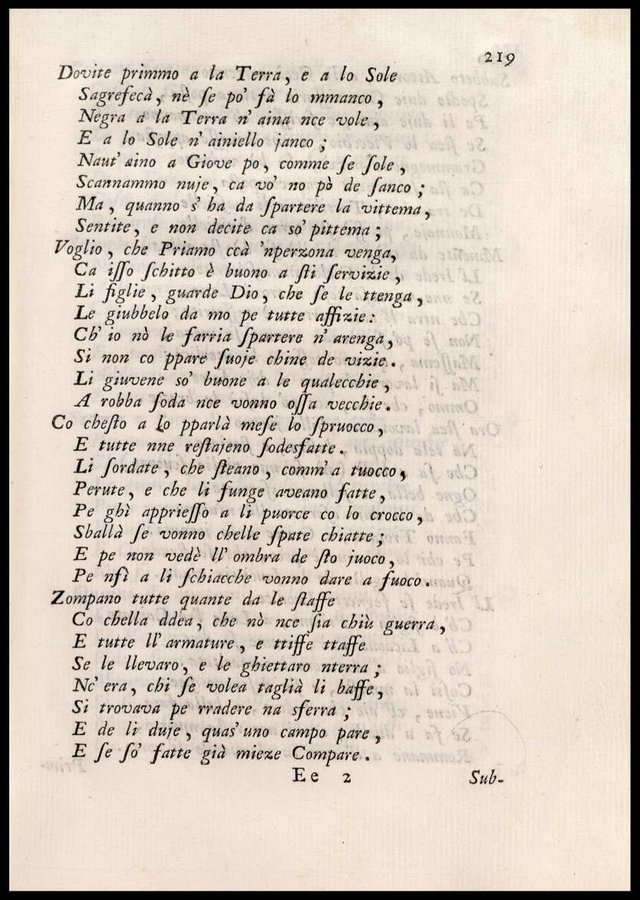 219
Dovite primmo a la Terra, e a lo Sole
Sagrefecà, nè ſe po' fà lo mmanco,
Negra a la Terra n' aina nce vole,
E a lo Sole n' ainiello janco;
Naut' aino a Giove po, comme ſe ſole,
Scannammo nuje, ca vo' no pò de ſanco;
Ma, quanno s' ha da ſpartere la vittema,
Sentite, e non decite ca so' pittema;
Voglio, che Priamo ccà 'nperzona venga,
Ca iſſo ſchitto è buono a ſti ſervizie,
Li figlie, guarde Dio, che ſe le ttenga,
Le giubbelo da mo pe tutte affizie:
Ch' io nò le farria ſpartere n' arenga,
Si non co ppare ſuoje chine de vizie.
Li giuvene so' buone a le qualecchie,
A robba ſoda nce vonno oſſa vecchie.
Co cheſto a lo pparlà meſe lo ſpruocco,
E tutte nne reſtajeno ſodesfatte.
Li ſordate, che ſteano, comm' a tuocco,
Perute, e che li funge aveano fatte,
Pe ghì apprieſſo a li puorce co lo crocco,
Sballà ſe vonno chelle ſpate chiatte;
E pe non vedè ll' ombra de ſto juoco,
Pe nſì a li ſchiacche vonno dare a fuoco.
Zompano tutte quante da le ſtaffe
Co chella ddea, che nò nce ſia chiù guerra,
E tutte ll' armature, e ttiffe ttaffe
Se le llevaro, e le ghiettaro nterra;
Nc' era, chi ſe volea taglià li baffe,
Si trovava pe rradere na sferra;
E de li duje, quas' uno campo pare,
E ſe ſo' fatte già mieze Compare.
Ee 2
Sub-